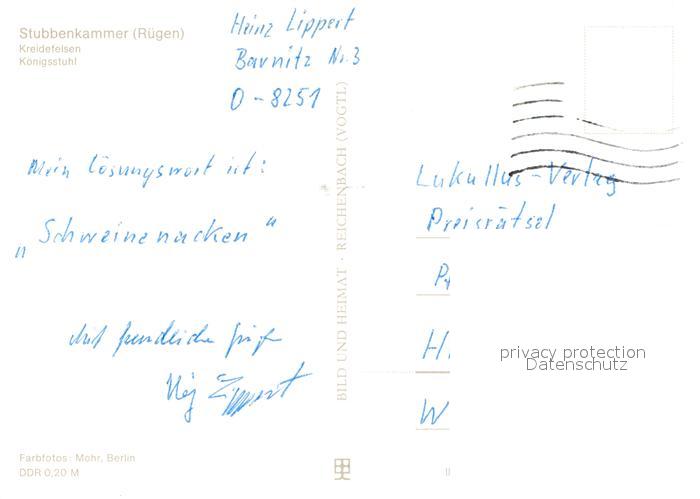 Stubbenkammer (Rügen)
Kreidefelsen
Königsstuhl
Heinz Lippert
Barnitz Nr. 3
O-8251
Mein Lösungswort ist:
„Schweinenacken“
Mit freundlichen Grüßen
Lippert
Farbfotos: Mohr, Berlin
DDR 0,20 M
BILD UND HEIMAT · REICHENBACH (VOGTL)
Lukullus-Verlag
Preisrätsel
P
H
W
privacy protection
Datenschutz